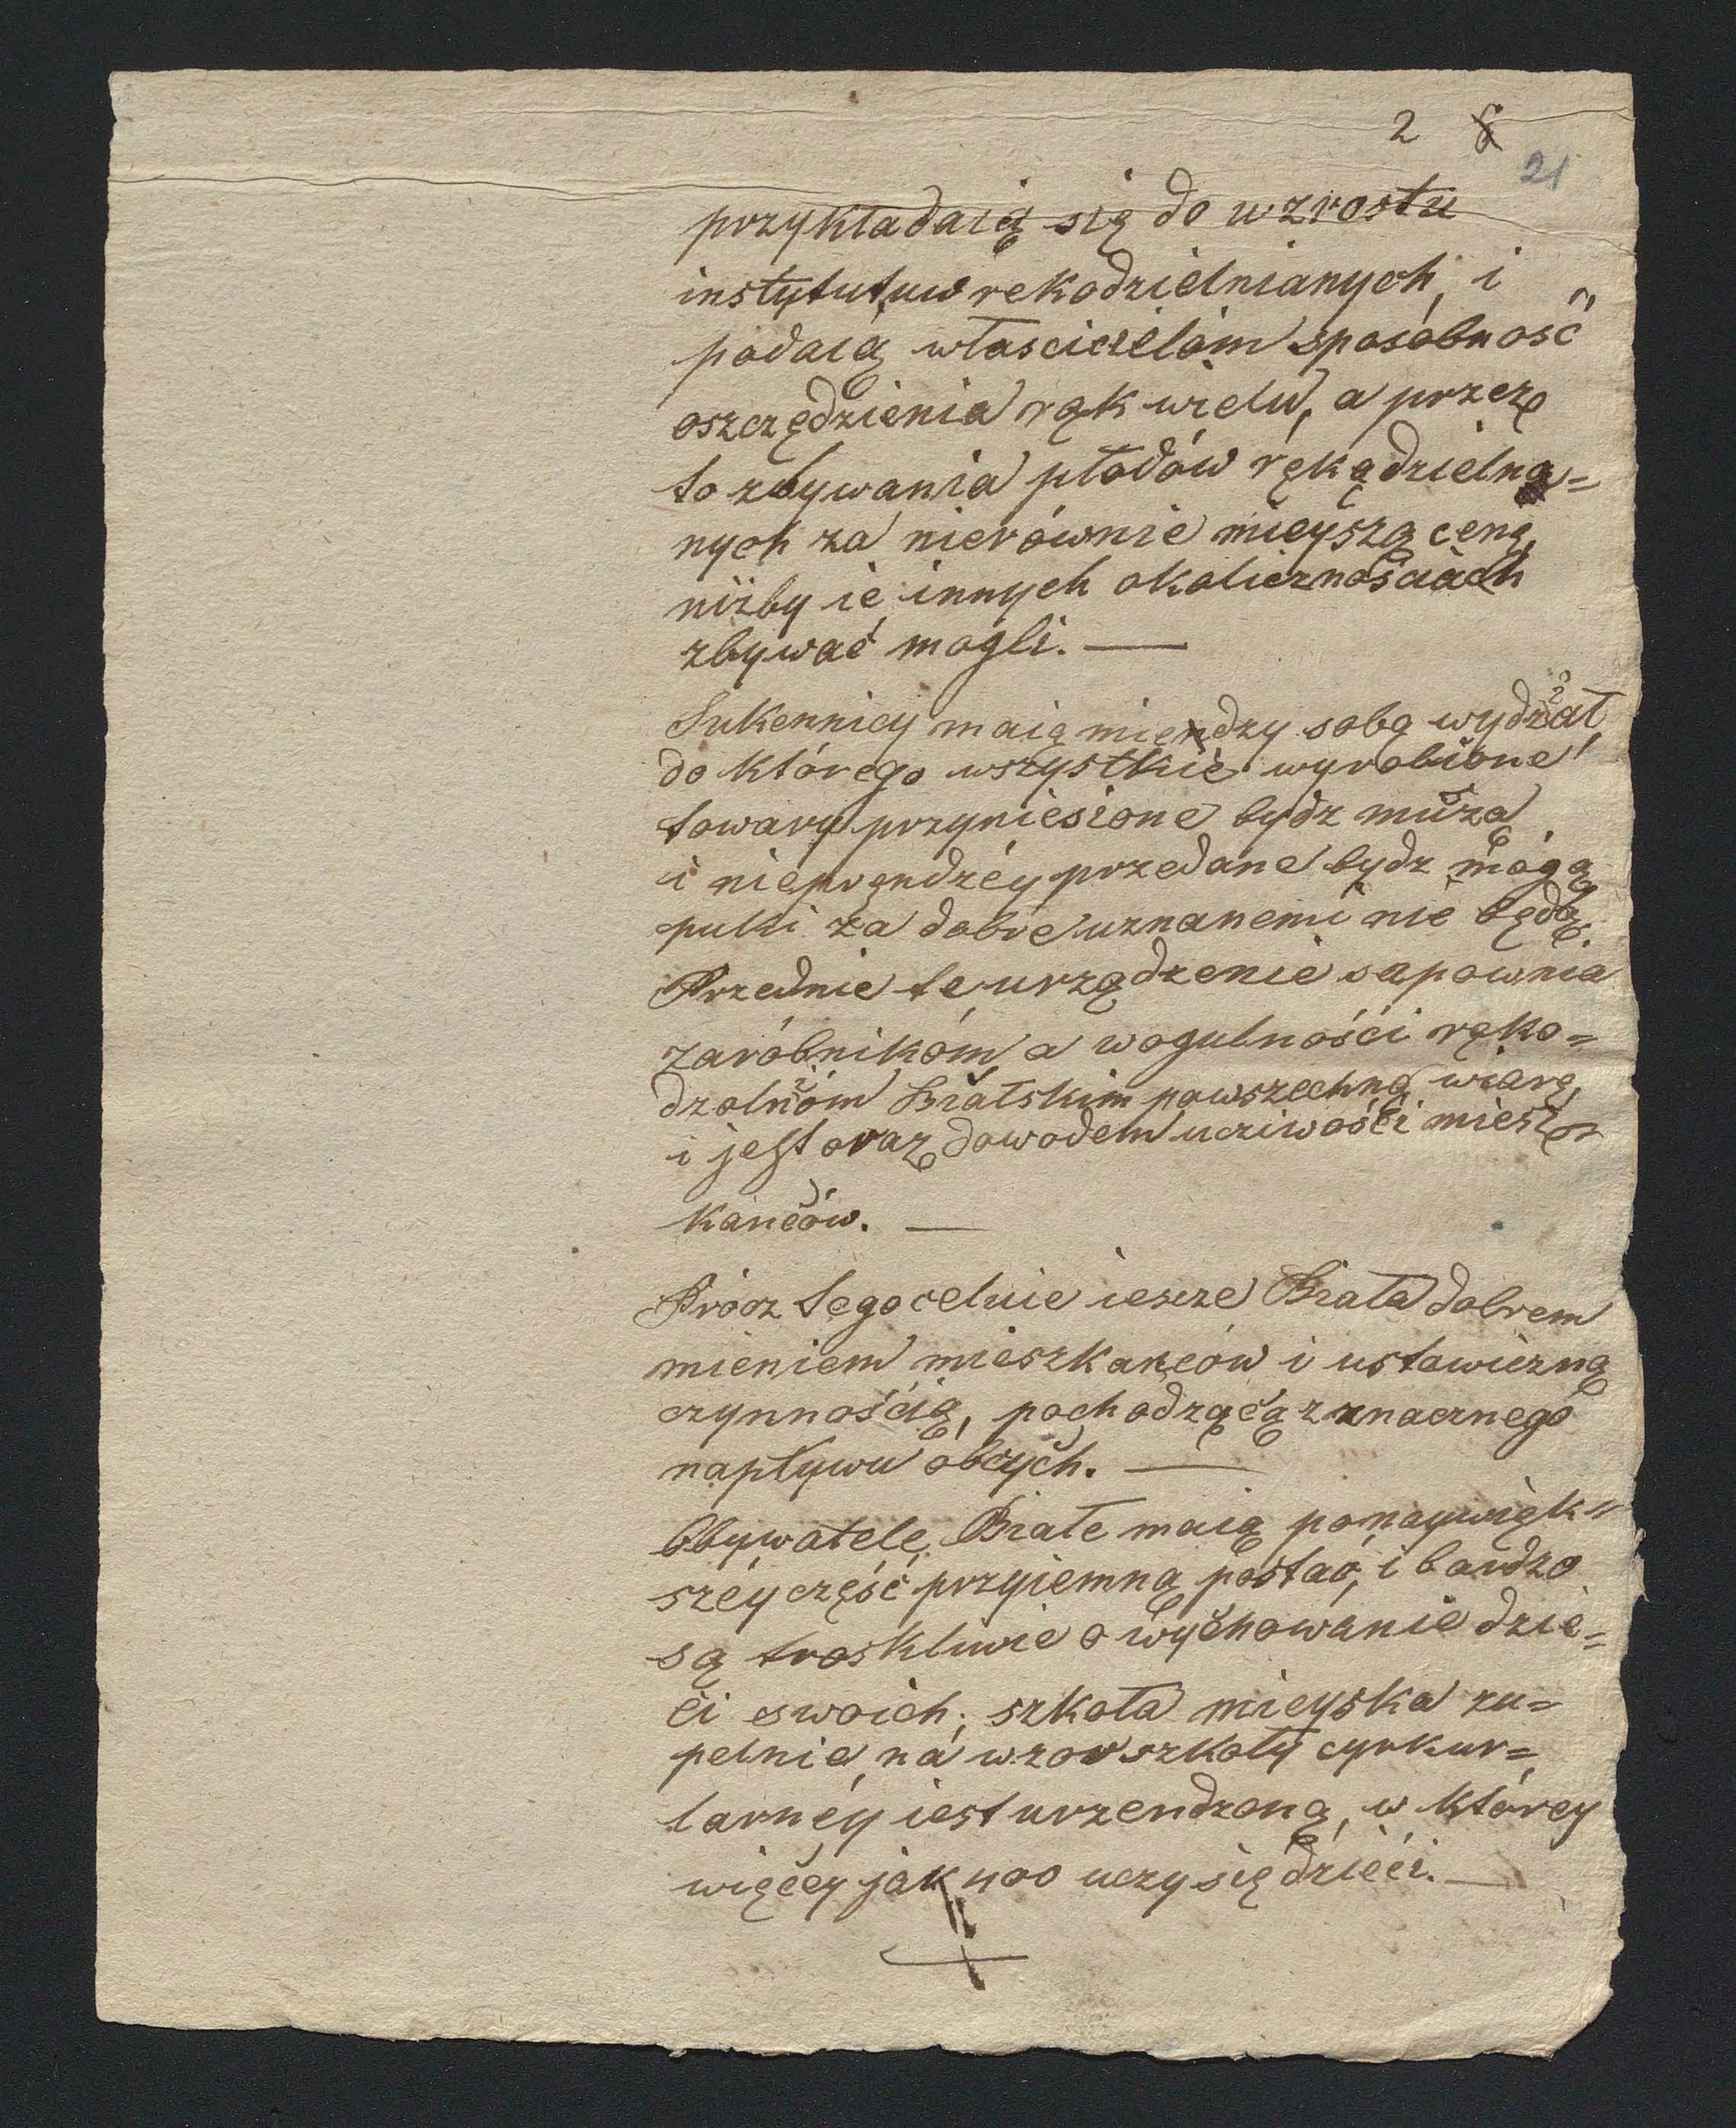 2 8
21
przykładaią się do wzrostu
instytutuw rekodzielnianych, i
podaią własciciełóm sposóbność
oszczędzienia rąk wielu, a przez
to zbywania płodów rękądzielną=
nych za nierównie mieyszą ceną,
niżby ie innych okolicznościach
zbywać mogli. —
Sukennicy maią miendzy sobą wydział,
do którego wszystkie wyrobione
towary przyniesione bydz muszą
i nieprendzéy przedane bydz mogą
puki za dobre uznanemi nie będą.
Przednie te urządzenie sapownia
zaróbnikóm, a wogulnośći ręko=
dzolnióm Białskim powszechną wiarę,
i jest oraz dowodem ucziwośći miesz=
kańców. —
Prócz tego celuie iescze Biała dobrem
mieniem mieszkańców i ustawiczną
czynnością, pochodzącą z znacznego
napływu obcych. —
Obywatele Białe maią ponaywięk=
széy część przyiemną postać, i bardzo
są troskliwie o wychowanie dzie=
ći swoich; szkoła mieyska zu=
pełnie na wzor szkoły cyrkur=
larnéy iest urzendzoną, w którey
więcey jak 400 uczy się dzieći. —